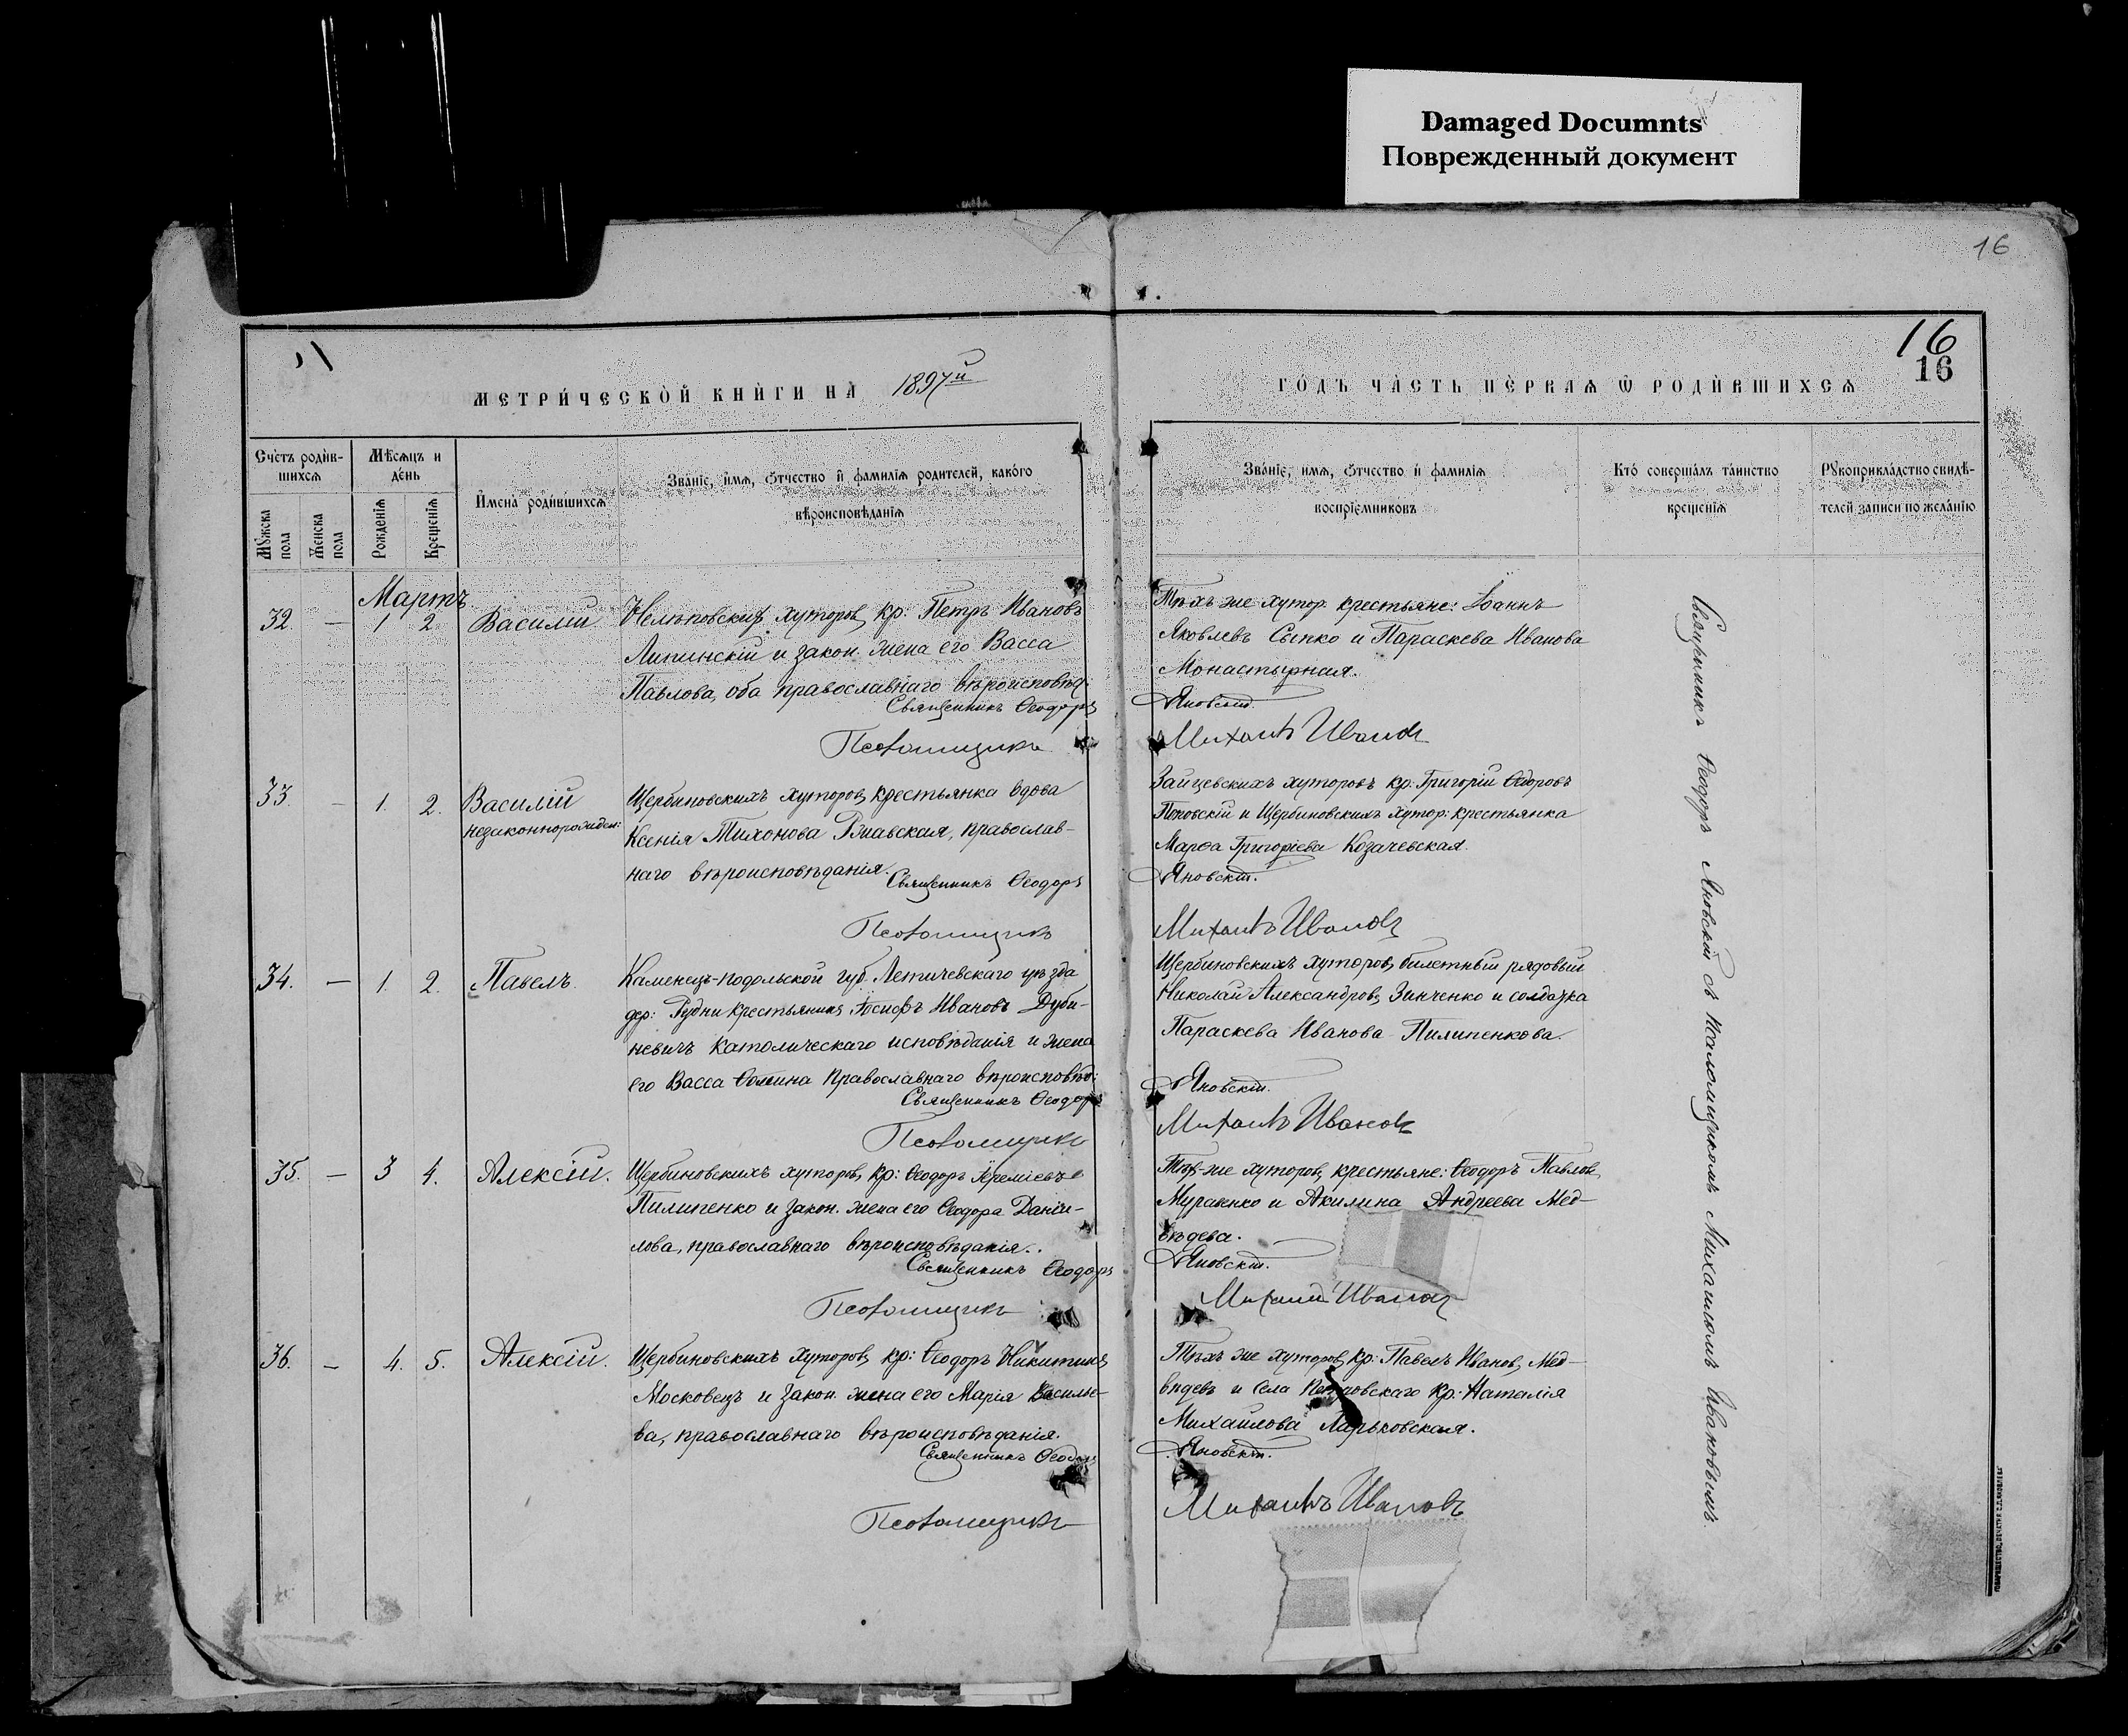 Damaged Documnts
Поврежденный документ
16
16
16
МЕТРИ́ЧЕСКОЙ КНИ́ГИ НА̀ 1897й
ГО́ДЪ ЧА́СТЬ ПЕ́РВАѦ Ѿ РОДИ́ВШИХСѦ
Сче́тъ роди́в-
шихсѧ
Мѣ́сѧцъ и
де́нь
Мꙋжска
пола
Женска
пола
Рожденїѧ
Крещенїѧ
Имена̀ роди́вшихсѧ
Зва́нїе, и́мѧ, ѿчество и҆ фамилїѧ родителей, како́го
вѣроисповѣ́данїѧ
Зва́нїе, имѧ, ѿчество и҆ фамилїѧ
воспрїе́мниковъ
Кто̀ соверша́лъ та́инство
креще́нїѧ
Рꙋкоприкла́дство свидѣ́-
телей записи по жела́нїю
Мартъ
32. — 1 2 Василій
Нелѣповскихъ хуторовъ кр: Петръ Ивановъ
Липинскій и закон. жена его Васса
Павлова, оба православнаго вѣроисповѣд.
Священникъ Ѳеодоръ
Псаломщикъ
Тѣхъ же хутор. крестьяне: Іоаннъ
Яковлевъ Сыпко и Параскева Иванова
Монастырная.
Яновскій.
Михаилъ Ивановъ
33. — 1. 2. Василій
незаконнорожден:
Щербиновскихъ хуторовъ крестьянка вдова
Ксенія Тихонова Ржавская, православ-
наго вѣроисповѣданія.
Священникъ Ѳеодоръ
Псаломщикъ
Зайцевскихъ хуторовъ кр: Григорій Ѳедоровъ
Поповскій и Щербиновскихъ хутор: крестьянка
Марѳа Григоріева Козачевская.
Яновскій.
Михаилъ Ивановъ
34. — 1. 2. Павелъ.
Каменецъ-подольской губ. Летичевскаго уѣзда
дер: Рудни крестьянинъ Іосифъ Ивановъ Дуби-
невичъ католическаго исповѣданія и жена
его Васса Ѳомина православнаго вѣроисповѣд:
Священникъ Ѳеодоръ
Псаломщикъ
Щербиновскихъ хуторовъ, билетный рядовый
Николай Александровъ Зинченко и солдатка
Параскева Иванова Пилипенкова.
Яновскій.
Михаилъ Ивановъ
35. — 3 4. Алексій.
Щербиновскихъ хуторовъ, кр: Ѳеодоръ Іереміевъ
Пилипенко и закон. жена его Ѳеодора Даніи-
лова, православнаго вѣроисповѣданія.
Священникъ Ѳеодоръ
Псаломщикъ
Тѣхъ-же хуторовъ, крестьяне: Ѳеодоръ Павловъ
Муравенко и Акилина Андреева Мед-
вѣдева.
Яновскій.
Михаилъ Ивановъ
36. — 4. 5. Алексій.
Щербиновскихъ хуторовъ кр: Ѳеодоръ Никитинъ
Московецъ и закон. жена его Марія Василье-
ва, православнаго вѣроисповѣданія.
Священникъ Ѳеодоръ
Псаломщикъ
Тѣхъ же хуторовъ кр: Павелъ Ивановъ Мед-
вѣдевъ и села Петровскаго кр: Наталія
Михаилова Харьковская.
Яновскій.
Михаилъ Ивановъ
Священникъ Ѳеодоръ Яновскій съ псаломщикомъ Михаиломъ Ивановымъ.